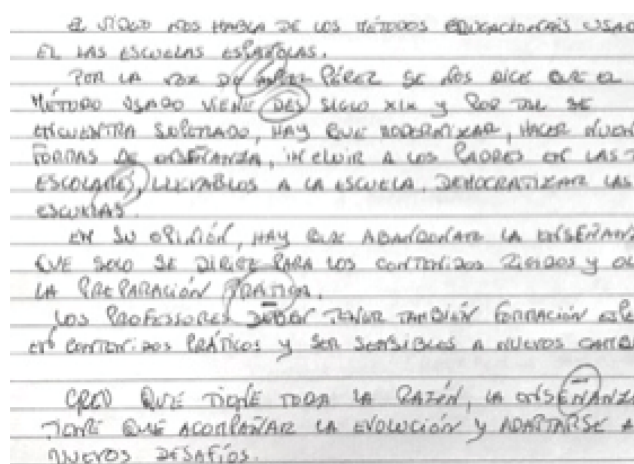 EL VÍDEO NOS HABLA DE LOS MÉTODOS EDUCACIONAIS USAD
EL LAS ESCUELAS ESPAÑOLAS.
POR LA VOZ DE PÉREZ SE NOS DICE QUE EL
MÉTODO USADO VIENE DES SIGLO XIX Y POR TAL SE
ENCUENTRA SUPERADO, HAY QUE MODERNIZAR, HACER NUEV
FORMAS DE ENSEÑANZA, INCLUIR A LOS PADRES EN LAS T
ESCOLARES, LLEVARLOS A LA ESCUELA, DEMOCRATIZAR LAS
ESCUELAS.
EN SU OPINIÓN, HAY QUE ABANDONAR LA ENSEÑAN
QUE SOLO SE DIRIGE PARA LOS CONTENIDOS RÍGIDOS Y OL
LA PREPARACIÓN PRATICA.
LOS PROFESSORES DEBEN TENER TAMBIÉN FORMACIÓN ESPE
EN CONTENIDOS PRÁTICOS Y SER SENSIBLES A NUEVOS CAMBI
CREO QUE TIENE TODA LA RAZÓN, LA ENSEÑANZA
TIENE QUE ACOMPAÑAR LA EVOLUCIÓN Y ADAPTARSE A
NUEVOS DESAFÍOS.